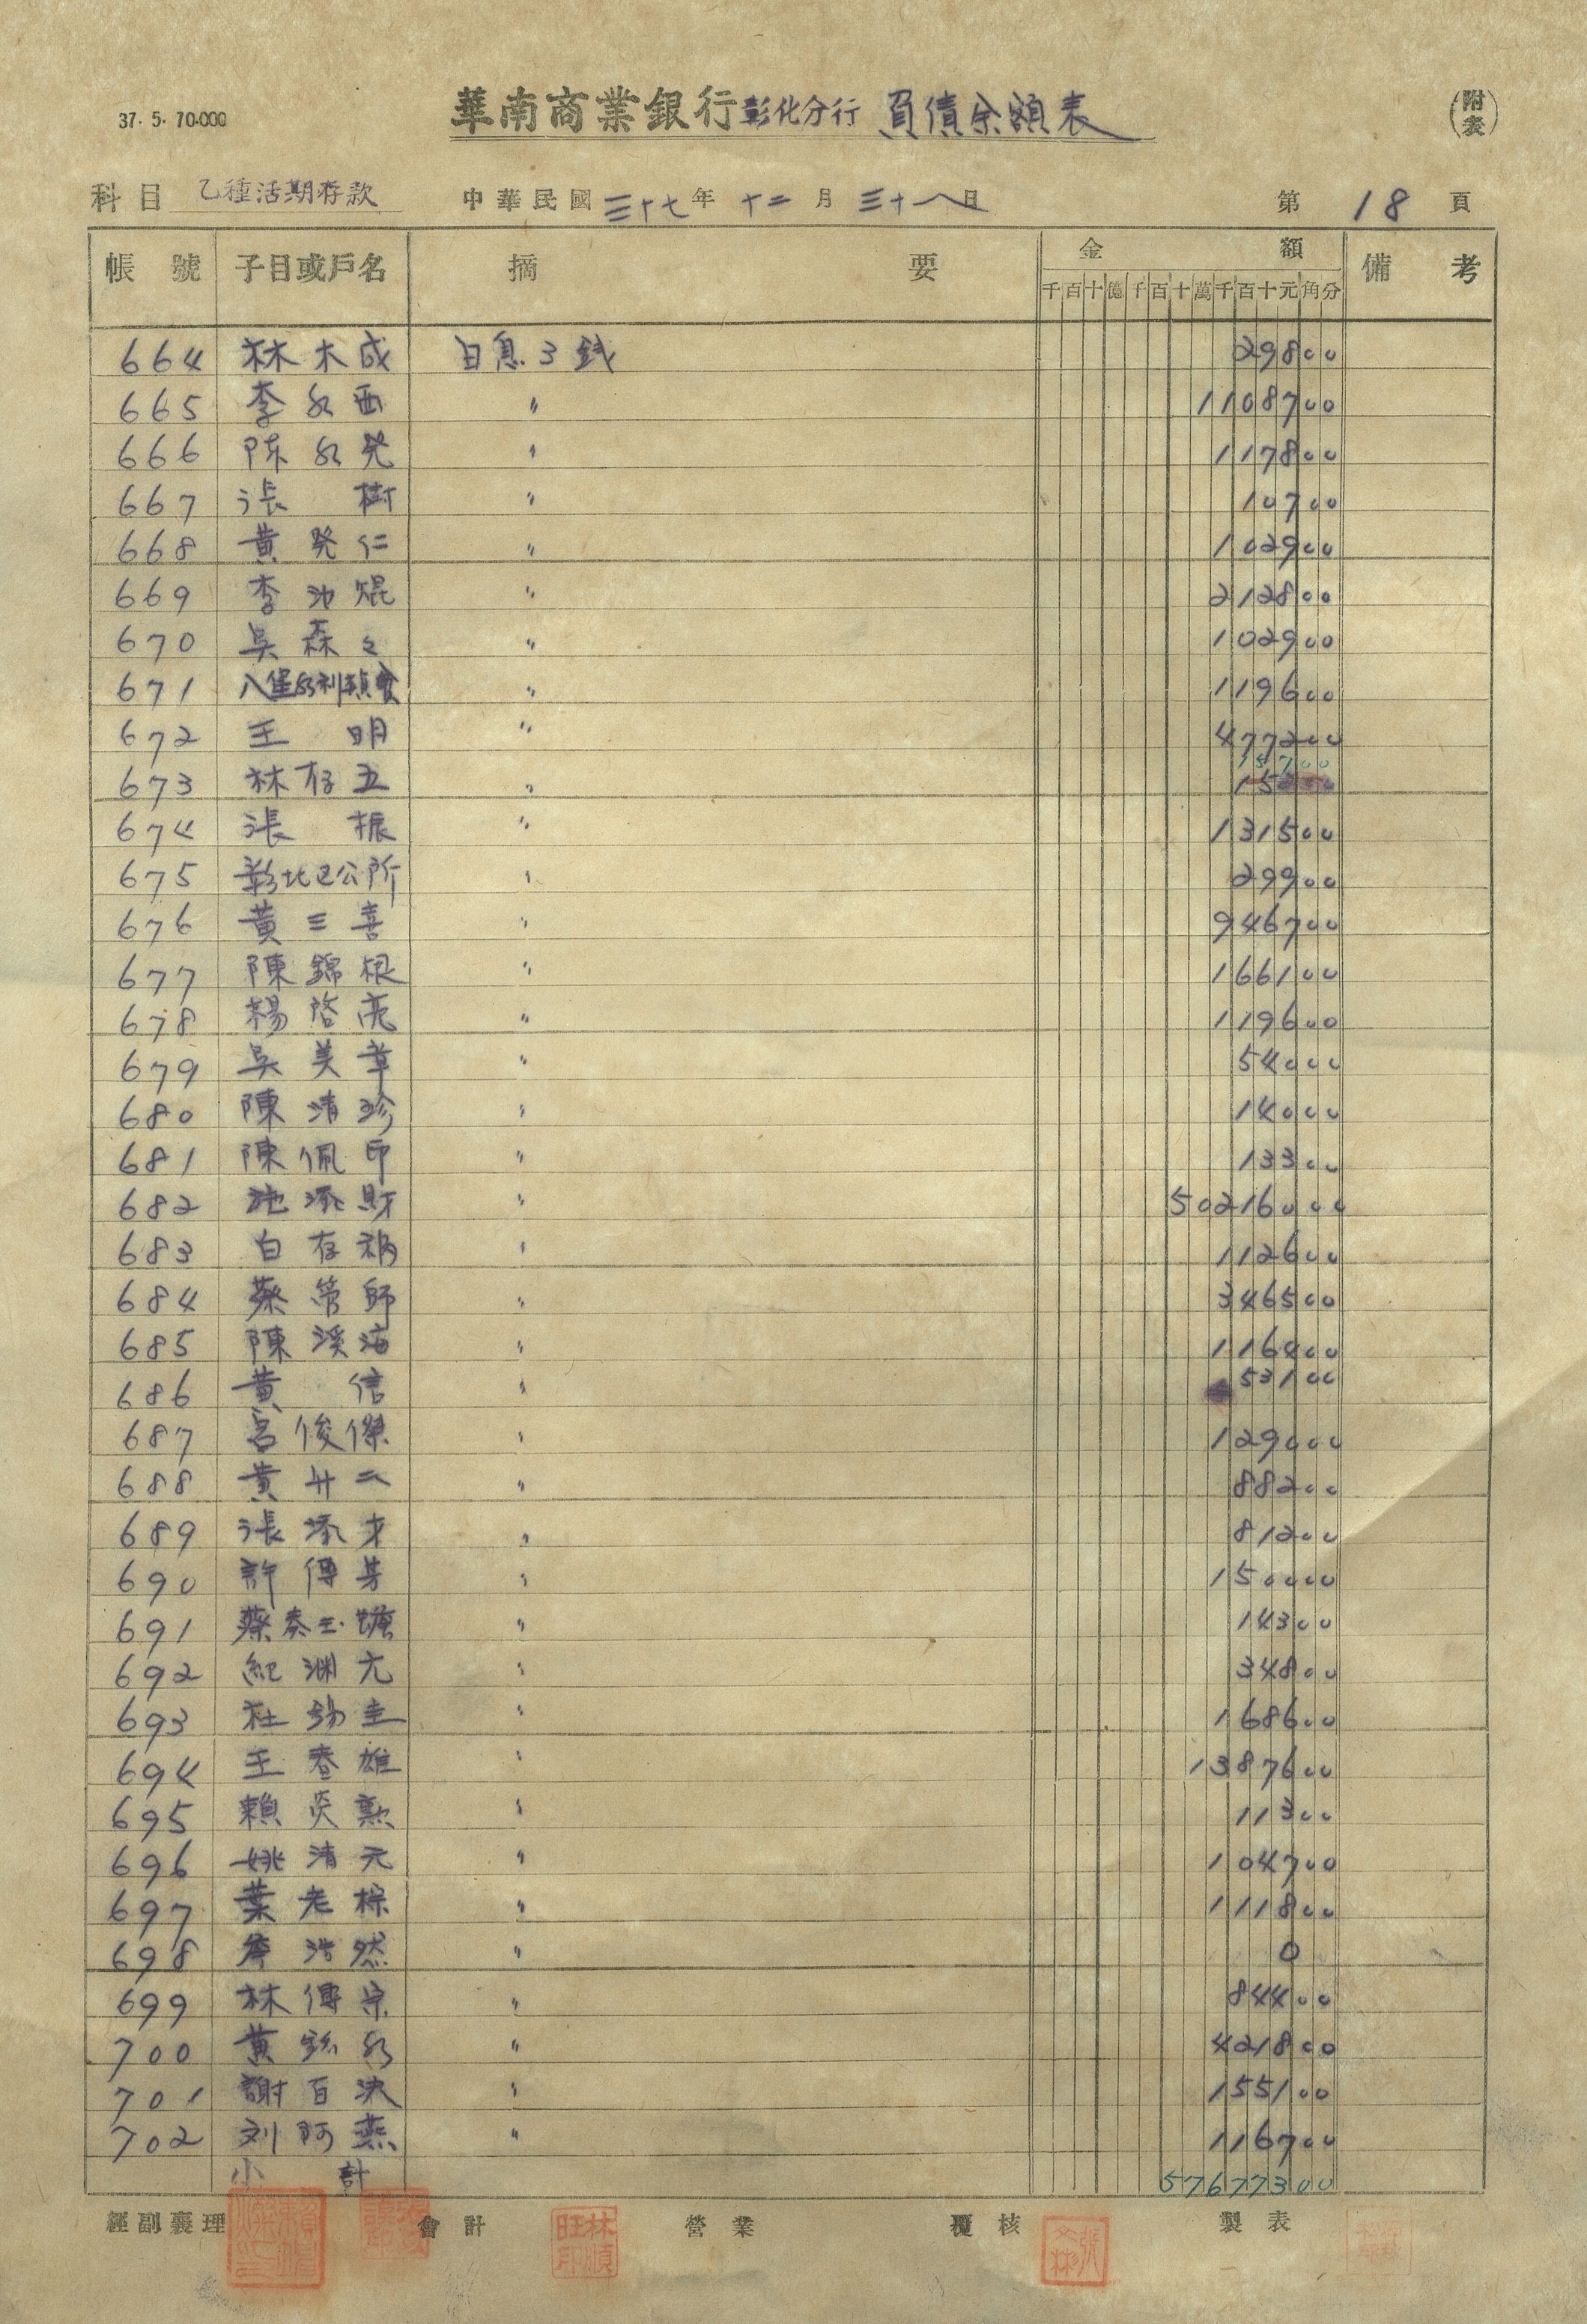 37.5.70.000 華南商業銀行彰化分行 負債余額表 (附表)
科目 乙種活期存款 中華民國三十七年十二月三十一日 第18頁
帳號 子目或戶名 摘要 金額 備考
千百十億千百十萬千百十元角分
664 林木成 日息3錢 29800
665 李水西 〃 1108700
666 陈水発 〃 117800
667 張樹 〃 10700
668 黃発仁 〃 102900
669 李池焜 〃 212800
670 吳森々 〃 102900
671 八堡水利 〃 119600
672 王明 〃 477200
15700
673 林存五 〃 15
674 張振 〃 131500
675 彰化区公所 〃 29900
676 黃三喜 〃 946700
677 陳錦根 〃 166100
678 楊啓亮 〃 119600
679 吳美章 〃 54000
680 陳清珍 〃 14000
681 陳佩印 〃 13300
682 施添財 〃 50216000
683 白存 〃 112600
684 蔡管師 〃 346500
685 陳溪海 〃 116400
686 黃信 〃 53100
687 呂俊傑 〃 129000
688 黃廿二 〃 88200
689 張添才 〃 81200
690 許傳芳 〃 150000
691 蔡秦玉 〃 14300
692 紀渊元 〃 34800
693 杜錫圭 〃 168600
694 王春雄 〃 1387600
695 賴炎勲 〃 11300
696 姚清元 〃 104700
697 葉老棕 〃 111800
698 詹浩然 〃 0
699 林傳宗 〃 84400
700 黃水 〃 421800
701 謝百決 〃 155100
702 刘阿燕 〃 116700
小計 57677300
經副襄理 會計 營業 覆核 製表
林順旺印
張文彬